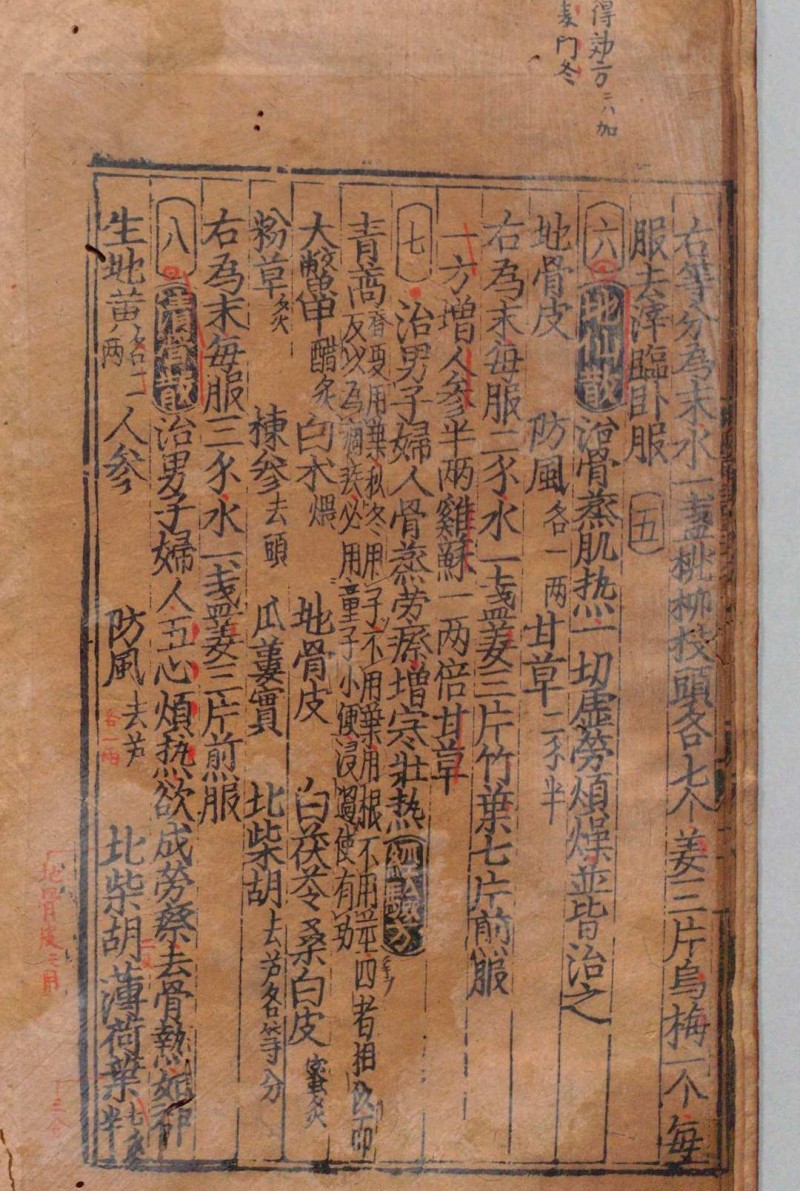 得効方云八加
麦門冬
右等分為末水一盞桃柳枝頭各七个姜三片烏梅一个每
服去滓臨卧服 五
六 地仙散 治骨蒸肌热一切虚劳煩燥並皆治之
地骨皮 防風各一两 甘草二分半
右為末每服二分水一盞姜三片竹葉七片煎服
一方增人参半两雞蘇一两倍甘草
七 治男子婦人骨蒸劳瘵增寒壯热
青蒿春夏用葉秋冬用子不用葉用根不用茎四者相
反以為痼疾必用童子小便浸過使有功
大鱉甲醋炙 白术煨 地骨皮 白茯苓 桑白皮蜜炙
粉草炙 楝参去頭 瓜蔞實 北柴胡去芦各等分
右為末每服三分水一盞姜三片煎服
八 清骨散 治男子婦人五心煩热欲成劳瘵去骨熱如神
生地黄各二两 人参 防風去芦 北柴胡 薄荷葉七分半
各一两
地骨皮